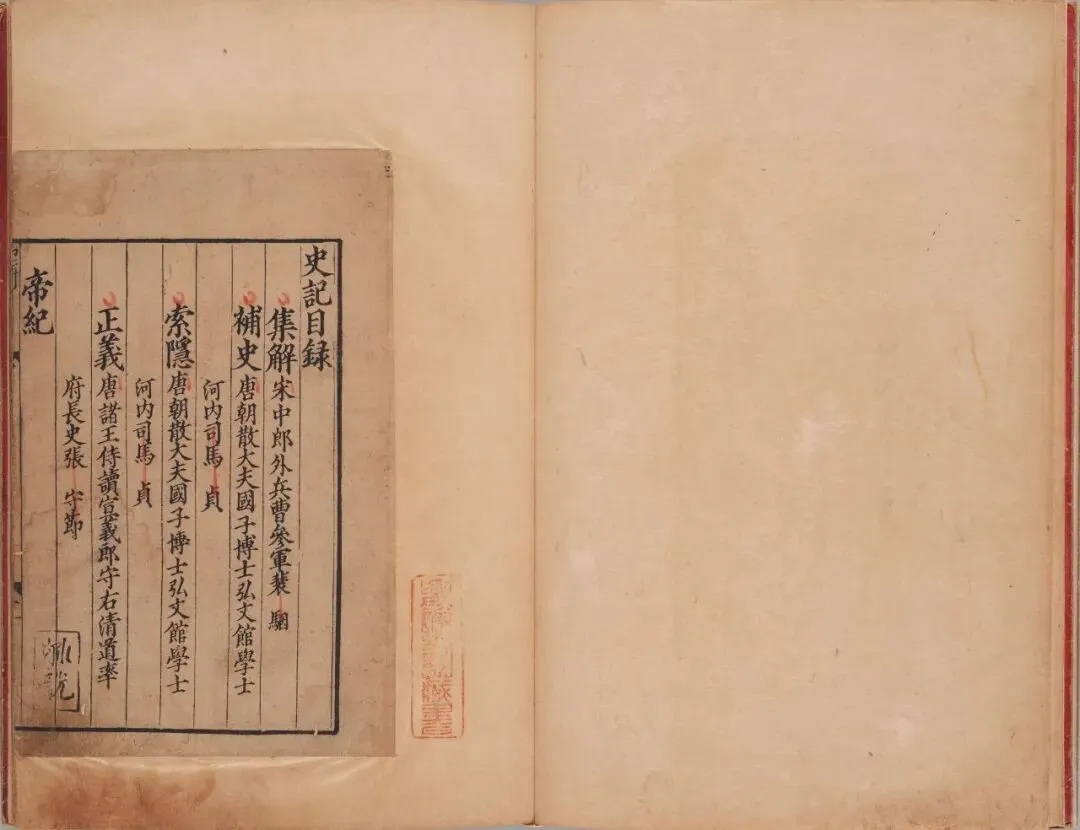 史記目録
集解宋中郎外兵曹參軍裴 駰
補史唐朝散大夫國子博士弘文館學士
河内司馬 貞
索隱唐朝散大夫國子博士弘文館學士
河内司馬 貞
正義唐諸王侍讀宣義郎守右清道率
府長史張 守節
帝紀